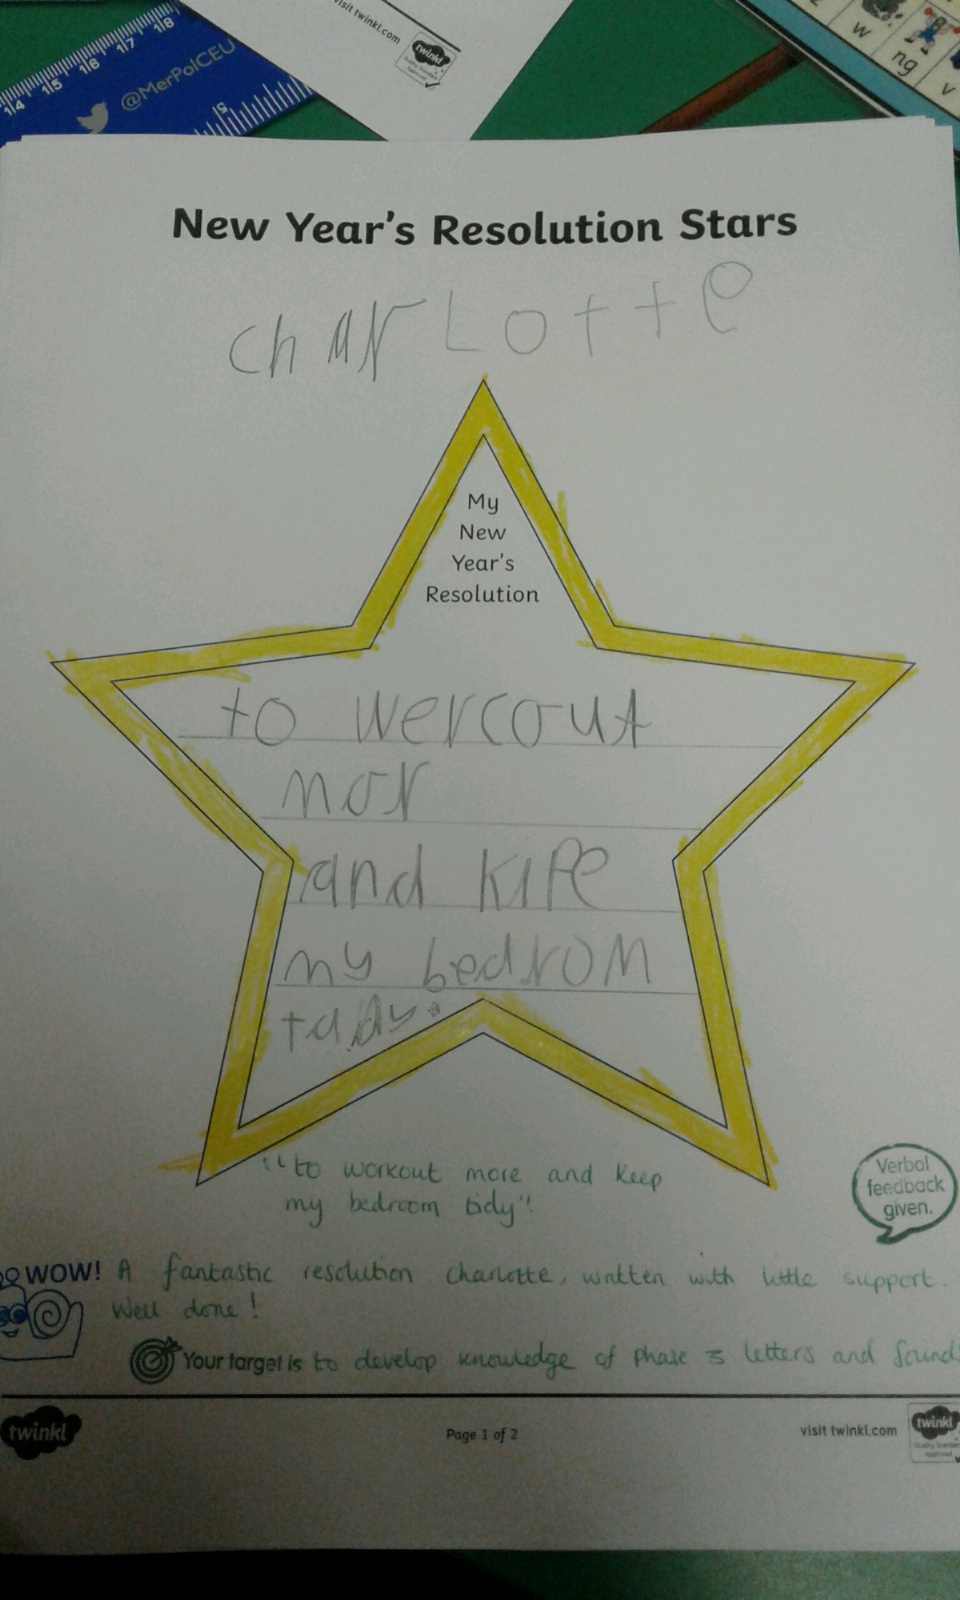 14 15 16 17 18
@MerPolCEU
15
visit twinkl.com
twinkl
w
ng
v
New Year's Resolution Stars
charLotte
My
New
Year's
Resolution
to wercout
mor
and kipe
my bedrom
tady.
"to workout more and keep
my bedroom tidy".
Verbal
feedback
given.
WOW! A fantastic resolution Charlotte, written with little support.
Well done!
Your target is to develop knowledge of Phase 3 letters and sound
twinkl
Page 1 of 2
visit twinkl.com
twinkl
Quality Standard
Approved